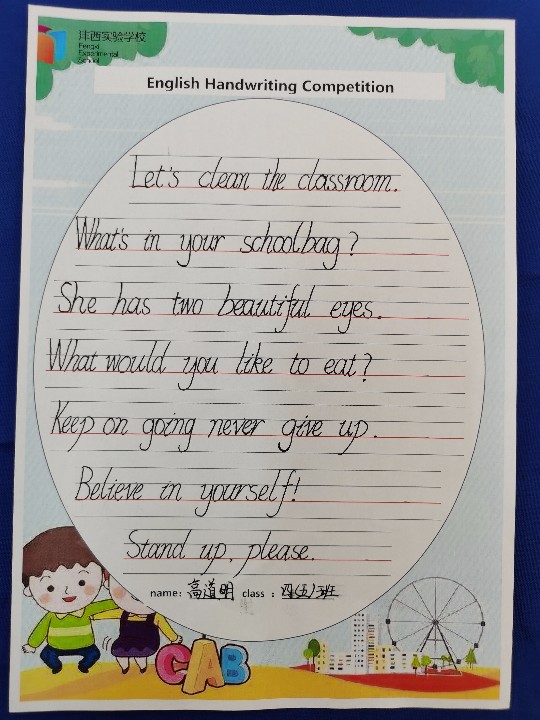 沣西实验学校
Fengxi
Experimental
School
English Handwriting Competition
Let's clean the classroom.
What's in your schoolbag?
She has two beautiful eyes.
What would you like to eat?
Keep on going never give up.
Believe in yourself!
Stand up, please.
name: 高道明 class : 四(五)班
CAB